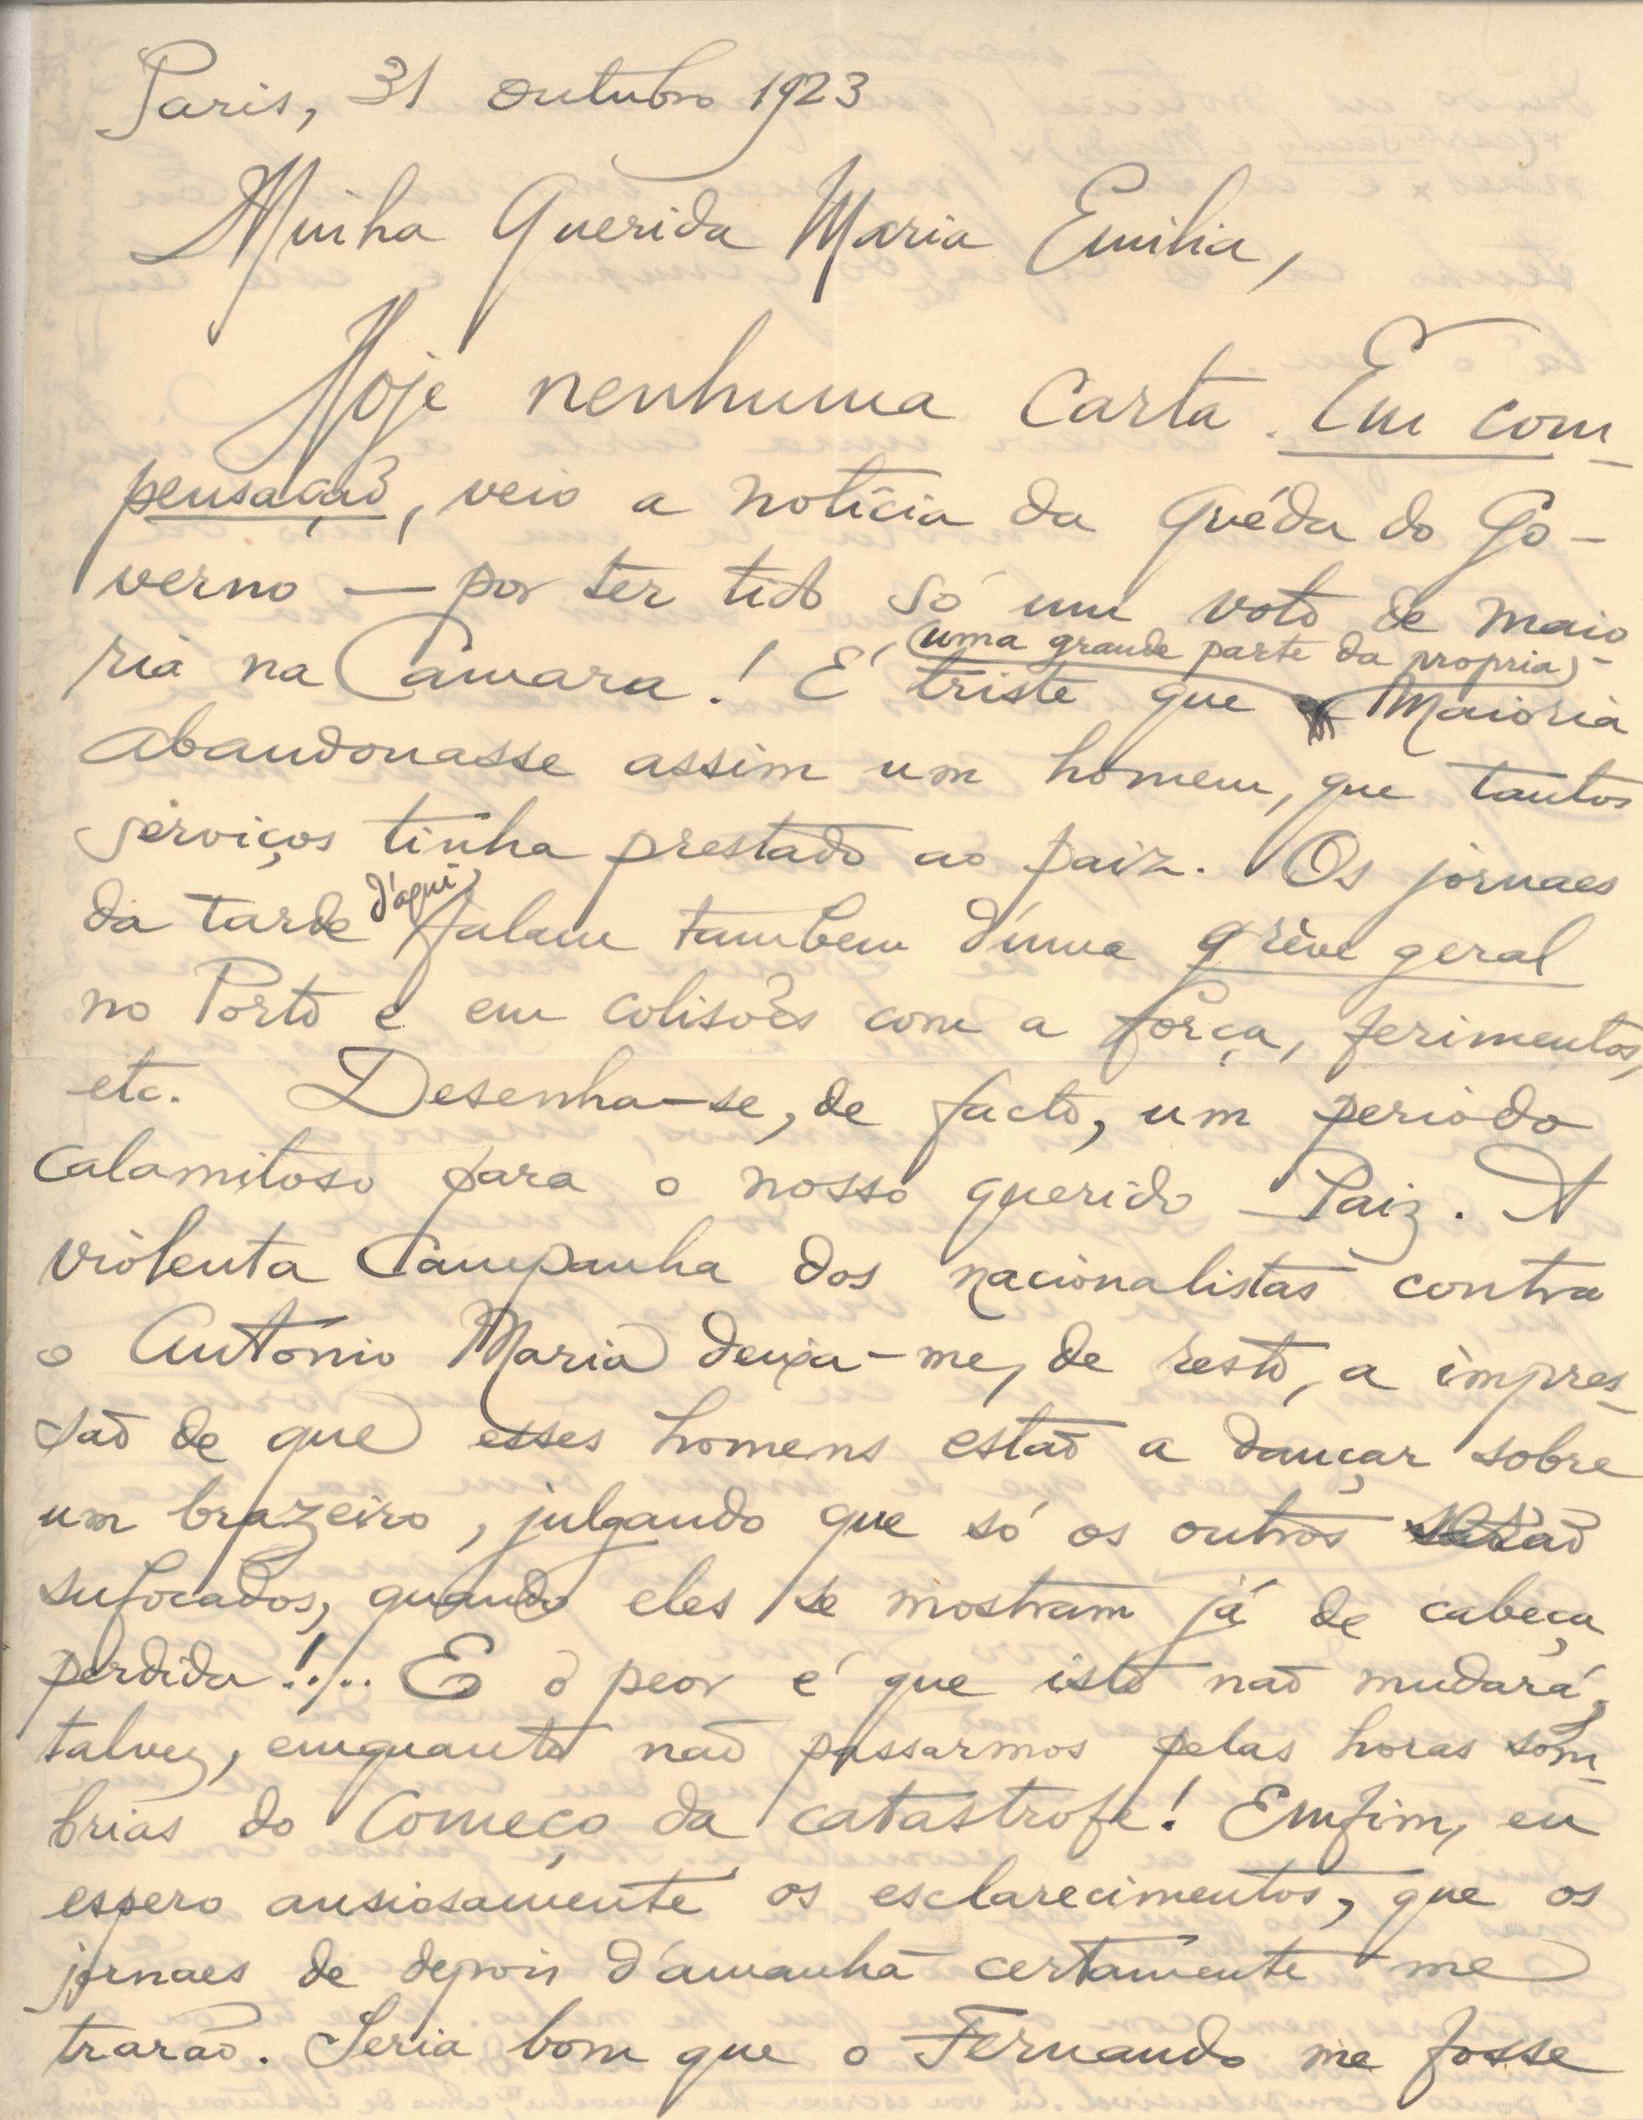 Paris, 31 outubro 1923
Minha Querida Maria Emilia,
Hoje nenhuma carta. Em com-
pensação, veio a notícia da quéda do Go-
verno — por ter tido só um voto de maio-
ria na Camara! É triste que (uma grande parte da propria) Maioria
abandonasse assim um homem, que tantos
serviços tinha prestado ao paiz. Os jornaes
da tarde d'aqui falam tambem d'uma grève geral
no Porto e em colisões com a força, ferimentos,
etc. Desenha-se, de facto, um periodo
calamitoso para o nosso querido Paiz. A
violenta Campanha dos nacionalistas contra
o António Maria deixa-me, de resto, a impres-
são de que esses homens estão a dançar sobre
um brazeiro, julgando que só os outros serão
sufocados, quando eles se mostram já de cabeça
perdida!... E o peor é que isto não mudará,
talvez, emquanto não passarmos pelas horas som-
brias do Começo da catastrofe! Emfim, eu
espero ansiosamente os esclarecimentos, que os
jornaes de depois d'amanhã certamente me
trarão. Seria bom que o Fernando me fosse